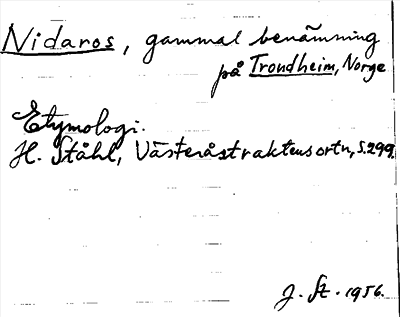 Nidaros, gammal benämning
på Trondheim, Norge
Etymologi.
H. Ståhl, Västeråstraktens ortn, s. 299.
J. St. 1956.